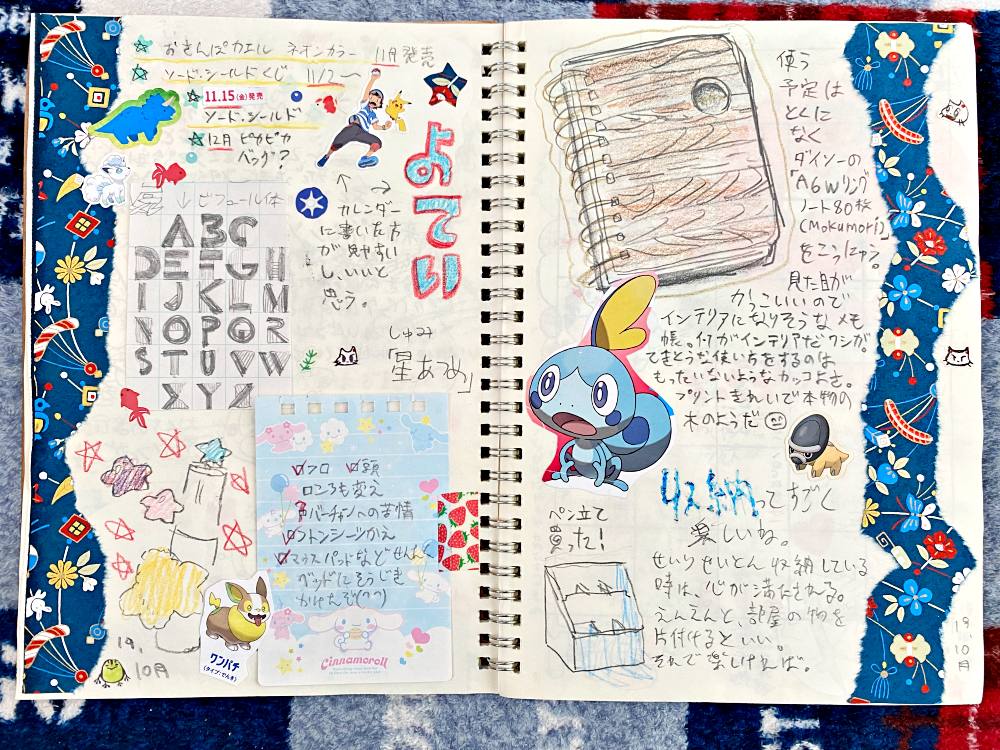 おさんぽカエル ネオンカラー 11月発売
ソード・シールドくじ 11/2～
11.15(金)発売
ソード・シールド
12月 ピカピカ
バッグ?
よてい
↑ → カレンダー
に書いた方
が見やすい
し、いいと
思う。
↓ビフュール体
ABC
DEFGH
IJKLM
NOPQR
STUVW
XYZ
しゅみ
「星あつめ」
フロ 頭
バーチャンへの苦情
フトンシーツかえ
マウスパッドなどせんたく
ベッドにそうじき
かけたぞ(??)
Cinnamoroll
ワンパチ
(タイプ:でんき)
19.
10月
使う
予定は
とくに
なく
ダイソーの
「A6Wリング
ノート80枚
(Mokumoku)」
をこうにゅう。
見た目が
かっこいいので
インテリアになりそうなメモ
帳。
てきとうな使い方をするのは
もったいないようなカッコよさ。
プリントきれいで本物の
木のようだ
収納ってすごく
楽しいね。
ペン立て
買った!
せいりせいとん収納している
時は、心が満たされる。
えんえんと、部屋の物を
片付けるといい。
それで楽しければ。
19.
10月